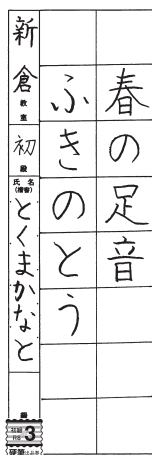 春の足音
ふきのとう
新倉教室
初級
氏名(楷書)
とくまかなと
初級
R8 3
硬筆